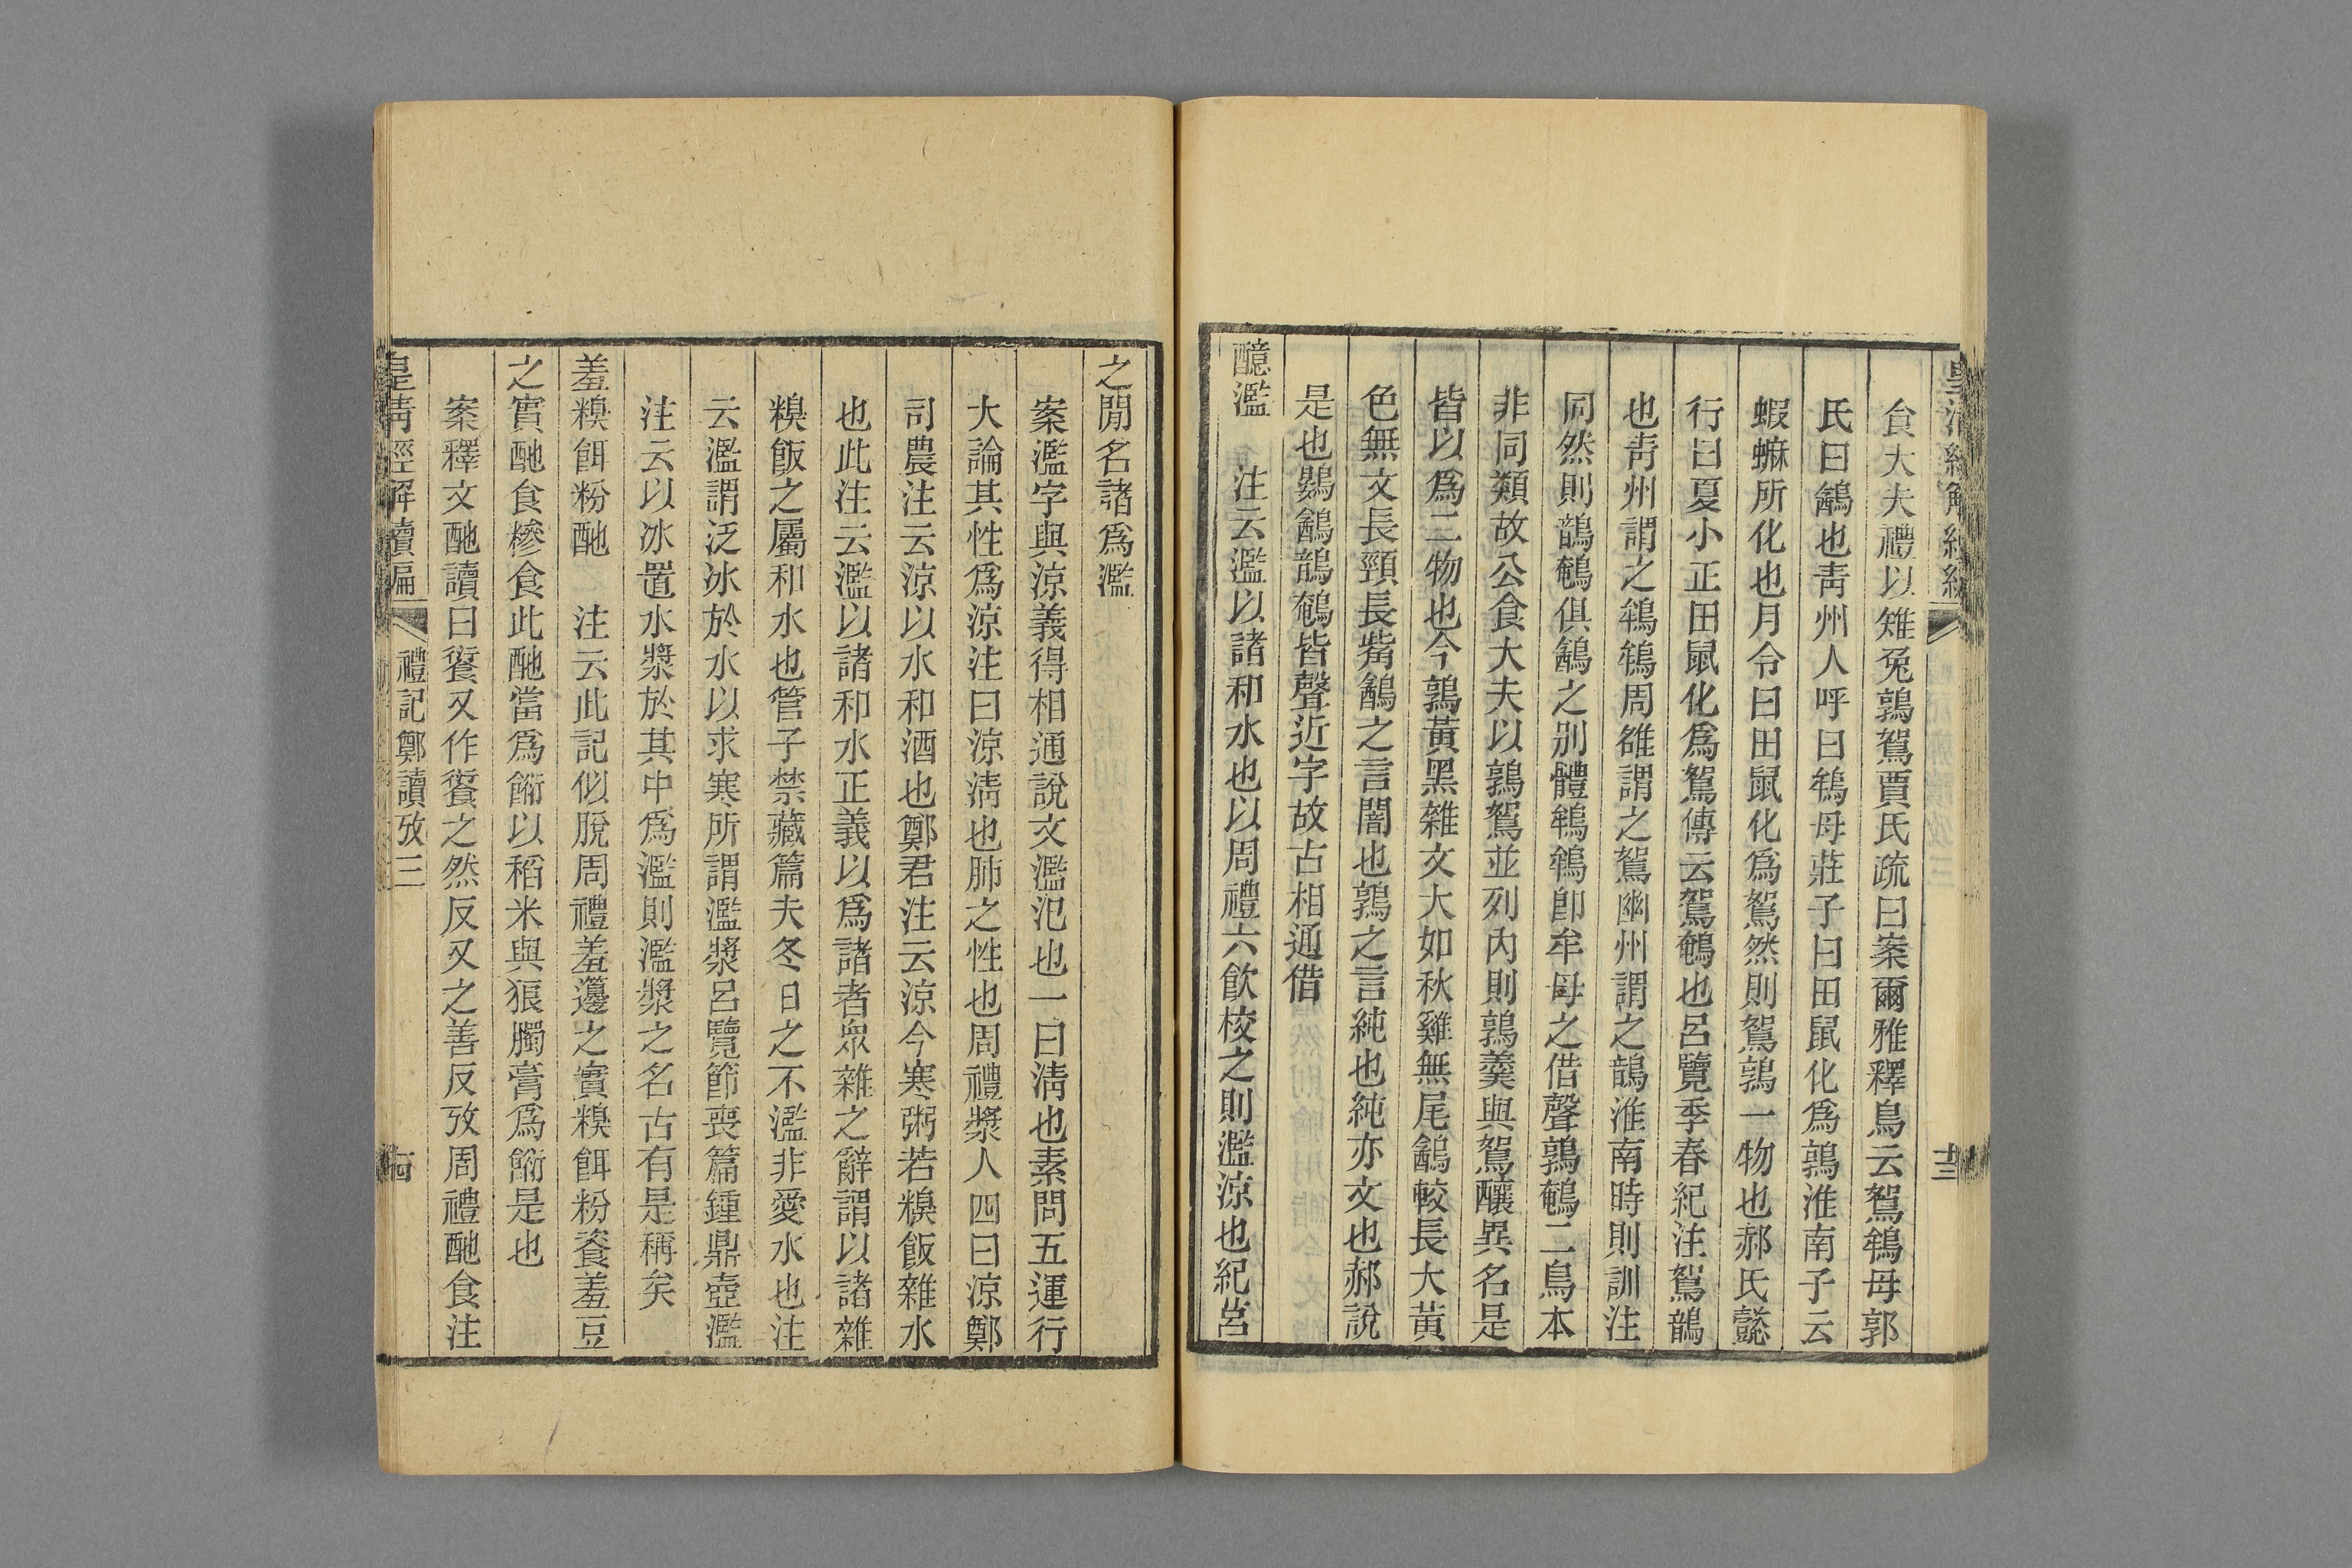 食大夫禮以雉兔鶉鴽賈氏疏曰案爾雅釋鳥云鴽鴾母郭
氏曰䳺也靑州人呼曰鴾母莊子曰田鼠化爲鶉淮南子云
蝦蟆所化也月令曰田鼠化爲鴽然則鴽鶉一物也郝氏懿
行曰夏小正田鼠化爲鴽傳云鴽鵪也呂覽季春紀注鴽鶕
也靑州謂之鴾鴾周雒謂之鴽幽州謂之鶕淮南時則訓注
同然則鶕鵪俱䳺之別體鴾鴾卽牟母之借聲鶉鵪二鳥本
非同類故公食大夫以鶉鴽並列內則鶉羹與鴽釀異名是
皆以爲二物也今鶉黃黑雜文大如秋雞無尾䳺較長大黃
色無文長頸長觜䳺之言闇也鶉之言純也純亦文也郝說
是也鷃䳺鶕鵪皆聲近字故古相通借
醷濫　注云濫以諸和水也以周禮六飮校之則濫涼也紀莒
之閒名諸爲濫
案濫字與涼義得相通說文濫氾也一曰淸也素問五運行
大論其性爲涼注曰涼淸也肺之性也周禮漿人四曰涼鄭
司農注云涼以水和酒也鄭君注云涼今寒粥若糗飯雜水
也此注云濫以諸和水正義以爲諸者衆雜之辭謂以諸雜
糗飯之屬和水也管子禁藏篇夫冬日之不濫非愛水也注
云濫謂泛冰於水以求寒所謂濫漿呂覽節喪篇鍾鼎壺濫
注云以冰置水漿於其中爲濫則濫漿之名古有是稱矣
羞糗餌粉酏　注云此記似脫周禮羞籩之實糗餌粉餈羞豆
之實酏食糝食此酏當爲餰以稻米與狼臅膏爲餰是也
案釋文酏讀曰餐又作餐之然反又之善反攷周禮酏食注
皇淸經解續編　禮記鄭讀攷三　古